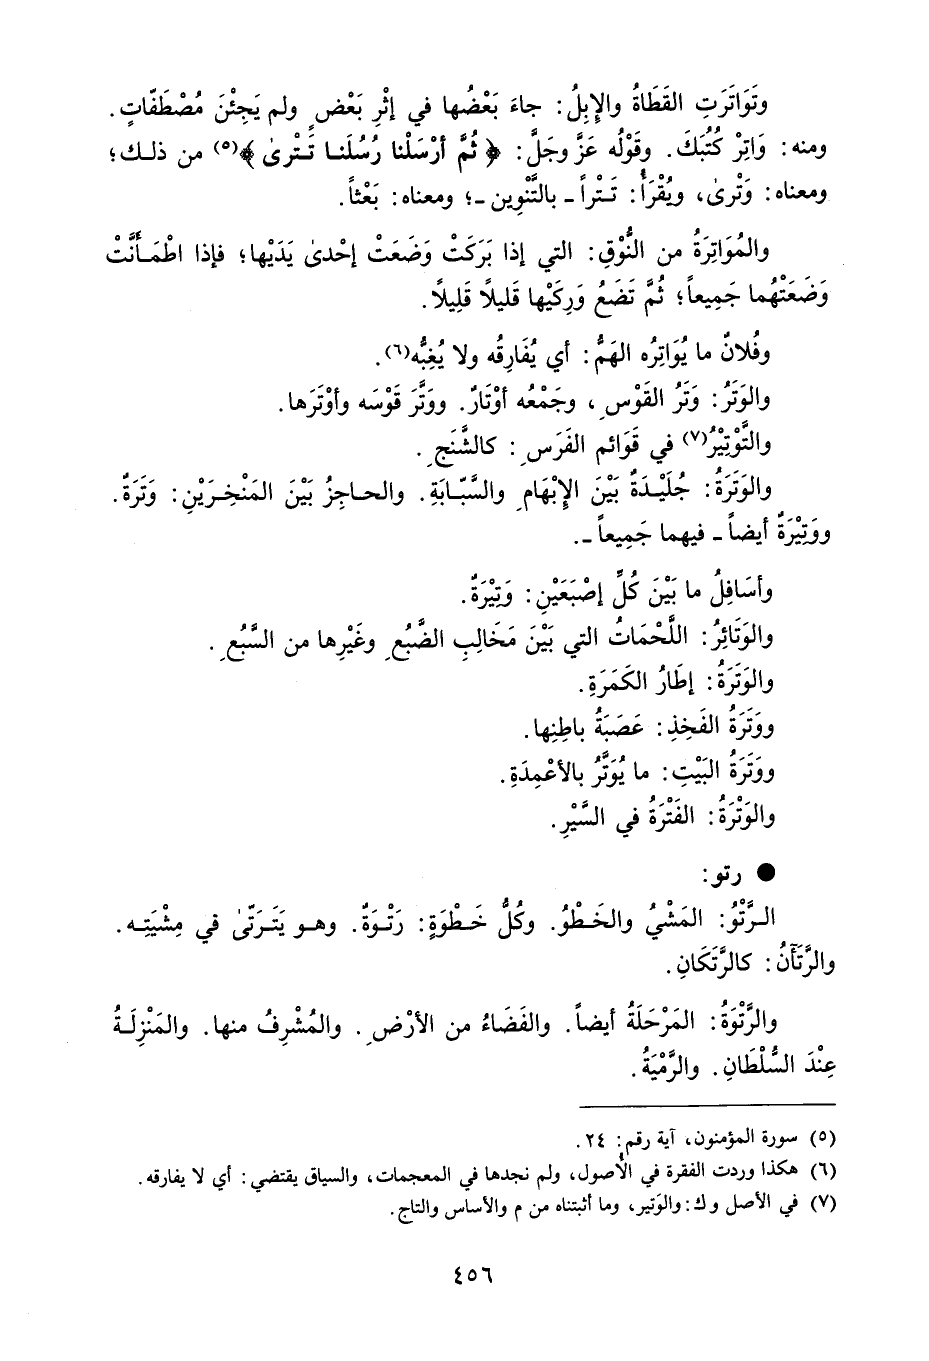 وتَوَاتَرَتِ القَطَاةُ والإبِلُ: جاءَ بَعْضُها في إثْرِ بَعْضٍ ولم يَجِئْنَ مُصْطَفّاتٍ.
ومنه: وَاتِرْ كُتُبَكَ. وقَوْلُه عَزَّ وجَلَّ: ﴿ ثُمَّ أرْسَلْنا رُسُلَنـا تَـتْرىٰ ﴾(٥) من ذلـك؛
ومعناه: وَتْرىٰ، ويُقْرَأُ: تَـتْراً ـ بالتَّنْوِين ـ؛ ومعناه: بَعْثاً.
والمُوَاتِرَةُ من النُّوْقِ: التي إذا بَرَكَتْ وَضَعَتْ إحْدىٰ يَدَيْها؛ فإذا اطْمَـأنَّتْ
وَضَعَتْهُما جَمِيعاً؛ ثُمَّ تَضَعُ وَرِكَيْها قَليلاً قَلِيلاً.
وفُلانٌ ما يُوَاتِرُه الهَمُّ: أي يُفَارِقُه ولا يُغِبُّه(٦).
والوَتَرُ: وَتَرُ القَوْسِ، وجَمْعُه أوْتَارٌ. ووَتَّرَ قَوْسَه وأوْتَرَها.
والتَّوْتِيْرُ(٧) في قَوَائم الفَرَسِ: كالشَّنَجِ.
والوَتَرَةُ: جُلَيْـدَةٌ بَيْنَ الإِبْهَامِ والسَّبّـابَةِ. والحـاجِزُ بَيْنَ المَنْخِـرَيْنِ: وَتَرَةٌ.
ووَتِيْرَةٌ أيضاً ـ فيهما جَمِيعاً ـ.
وأسَافِلُ ما بَيْنَ كُلِّ إصْبَعَيْنِ: وَتِيْرَةٌ.
والوَتَائِرُ: اللَّحْمَاتُ التي بَيْنَ مَخَالِبِ الضَّبُعِ وغَيْرِها من السَّبُعِ.
والوَتَرَةُ: إطَارُ الكَمَرَةِ.
ووَتَرَةُ الفَخِذِ: عَصَبَةُ باطِنِها.
ووَتَرَةُ البَيْتِ: ما يُوَتَّرُ بالأعْمِدَةِ.
والوَتْرَةُ: الفَتْرَةُ في السَّيْرِ.
● رتو:
الـرَّتْوُ: المَشْيُ والخَـطْوُ. وكُلُّ خَـطْوَةٍ: رَتْـوَةٌ. وهـو يَتَـرَتّىٰ في مِشْيَتِـه.
والرَّتَآنُ: كالرَّتَكَانِ.
والرَّتْوَةُ: المَرْحَلَةُ أيضاً. والفَضَاءُ من الأرْضِ. والمُشْرِفُ منها. والمَنْزِلَـةُ
عِنْدَ السُّلْطَانِ. والرَّمْيَةُ.
(٥) سورة المؤمنون، آية رقم: ٢٤.
(٦) هكذا وردت الفقرة في الأصول، ولم نجدها في المعجمات، والسياق يقتضي: أي لا يفارقه.
(٧) في الأصل وك: والوَتير، وما أثبتناه من م والأساس والتاج.
٤٥٦